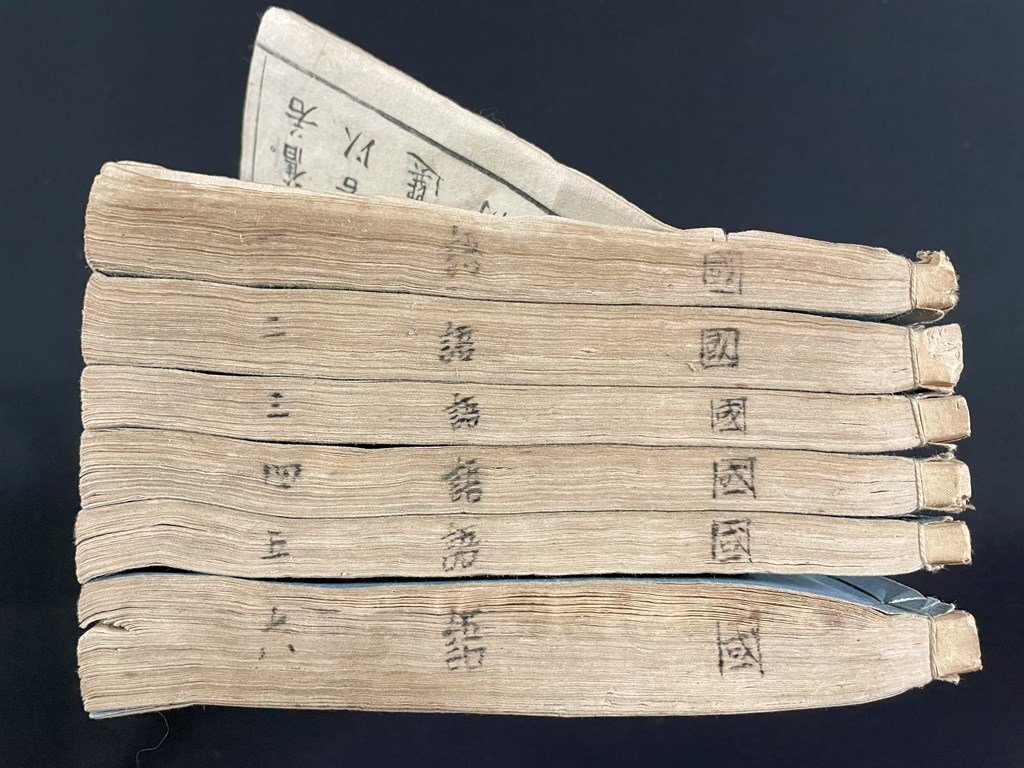 以
國語一
國語二
國語三
國語四
國語五
國語六